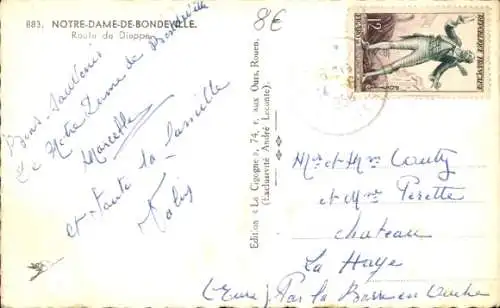 883. NOTRE-DAME-DE-BONDEVILLE.
Route de Dieppe
8€
Bons Souvenirs
de Notre Dame de Bondeville
Marcelle
et toute la famille
Edition « La Cigogne », 74, r. aux Ours, Rouen.
(Exclusivité André Leconte).
12F
REPUBLIQUE FRANCAISE
Mr et Mme
et Mme Perette
Chateau
La Haye
(Eure) Par la Barre en Ouche